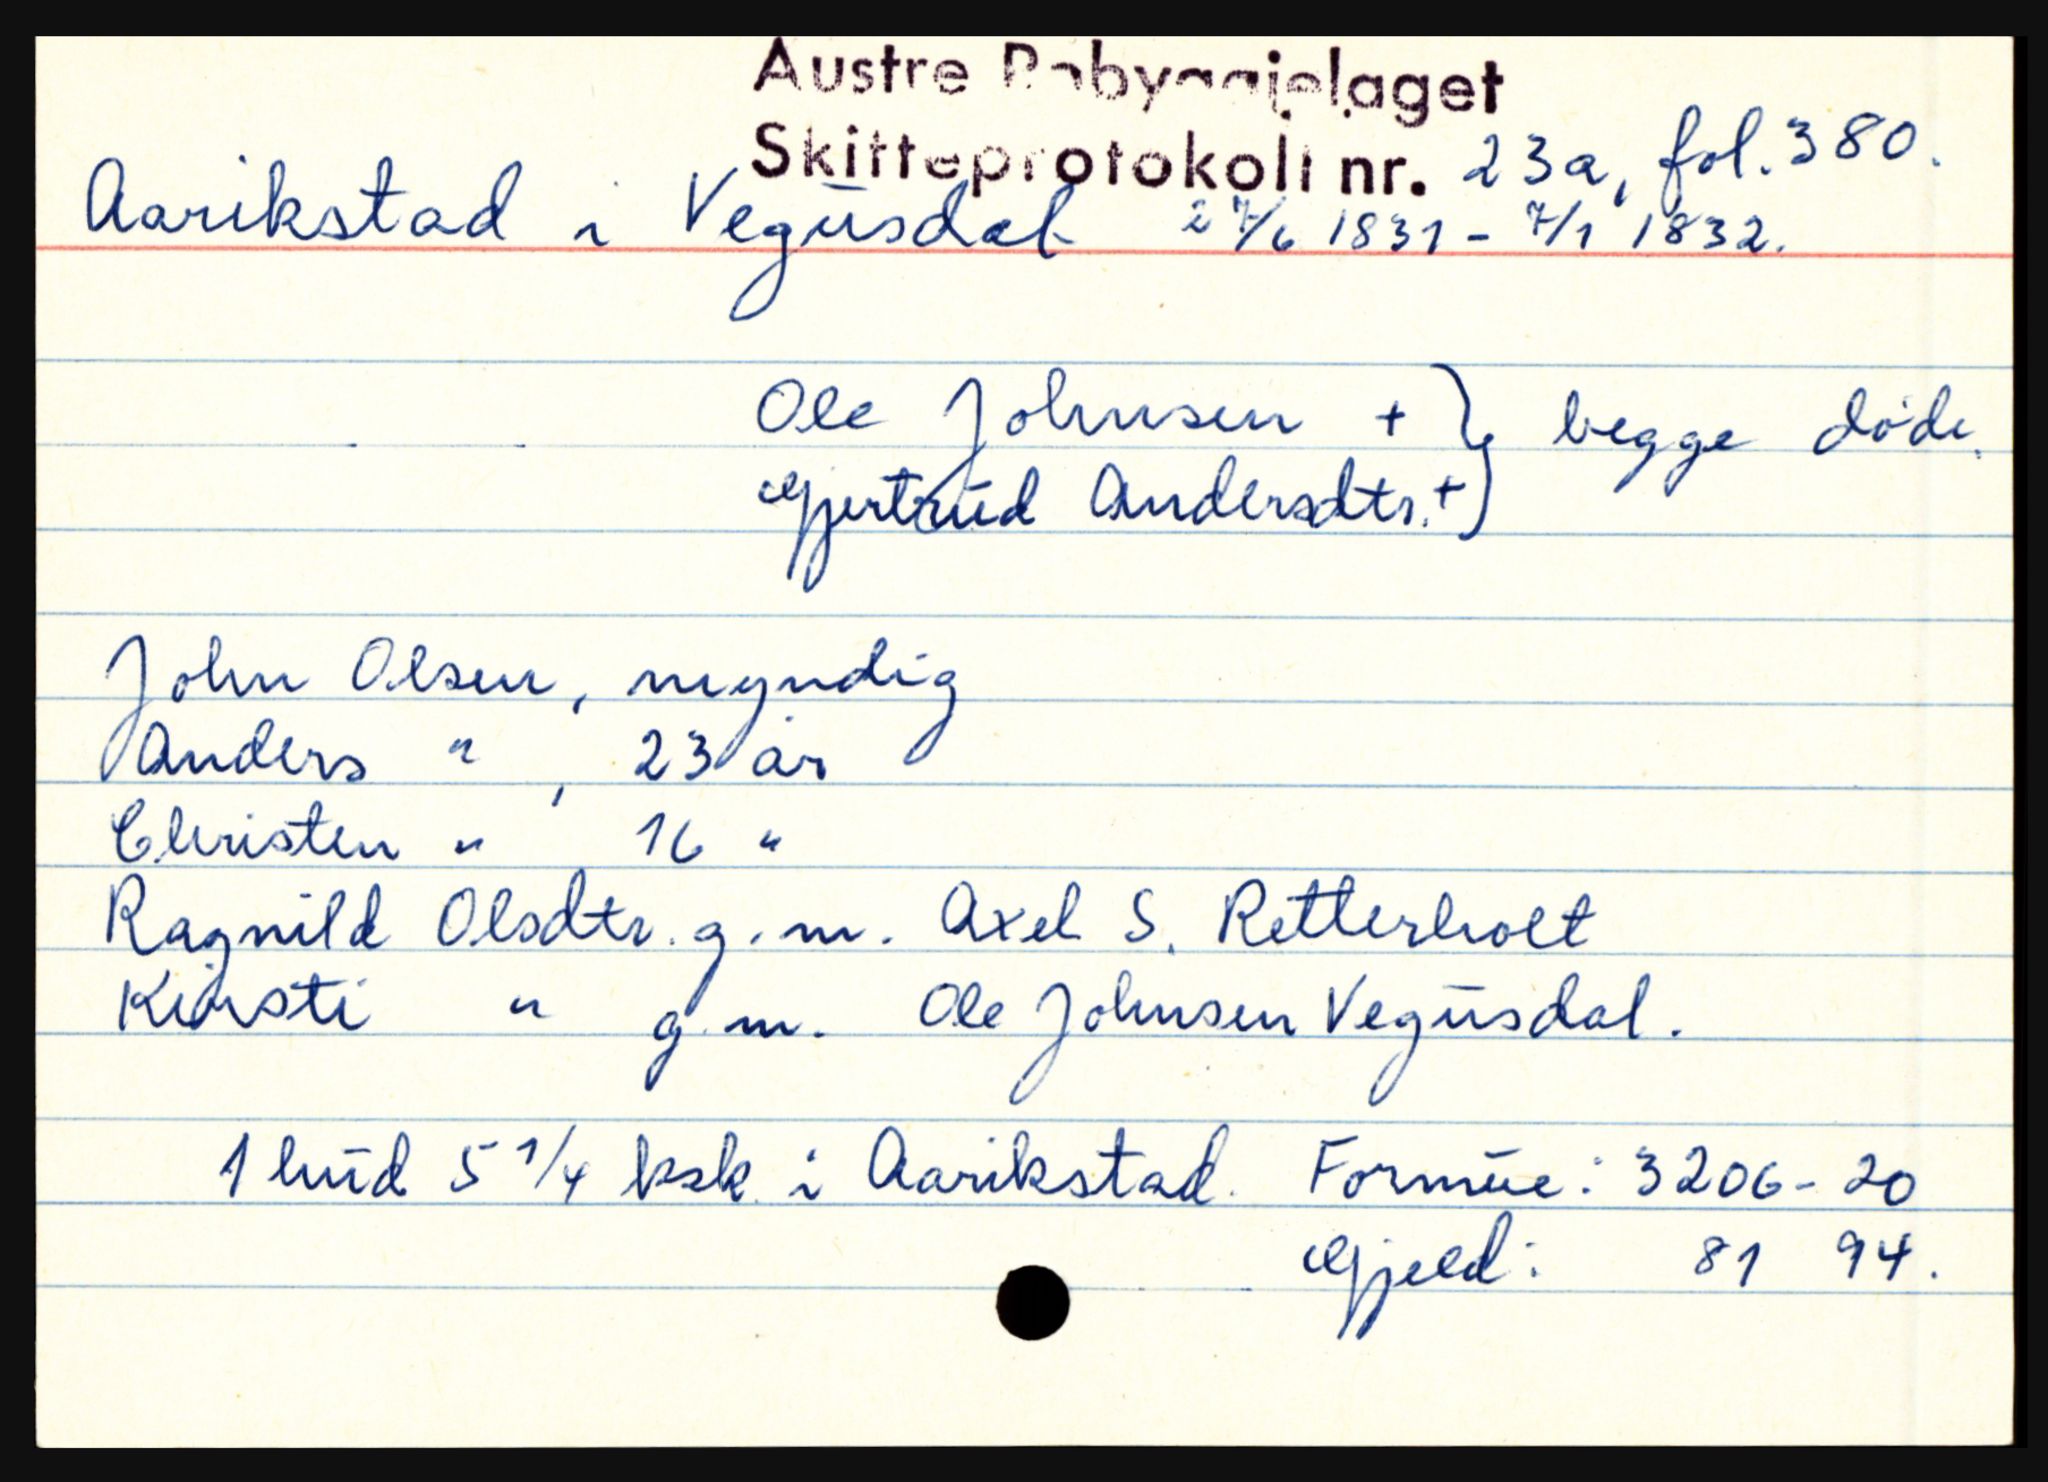 Austre Robyggjelaget
Skifteprotokoll nr. 23a, fol. 380.
Aarikstad i Vegusdal 27/6 1831 - 7/1 1832.
Ole Johnsen + } begge døde.
Gjertrud Andersdtr. + }
John Olsen, myndig
Anders " , 23 år
Christen " 16 "
Ragnild Olsdtr. g.m. Axel S. Retterholt
Kirsti " g.m. Ole Johnsen Vegusdal.
1 hud 5 1/4 ksk. i Aarikstad. Formue: 3206 - 20
Gjeld: 81 94.